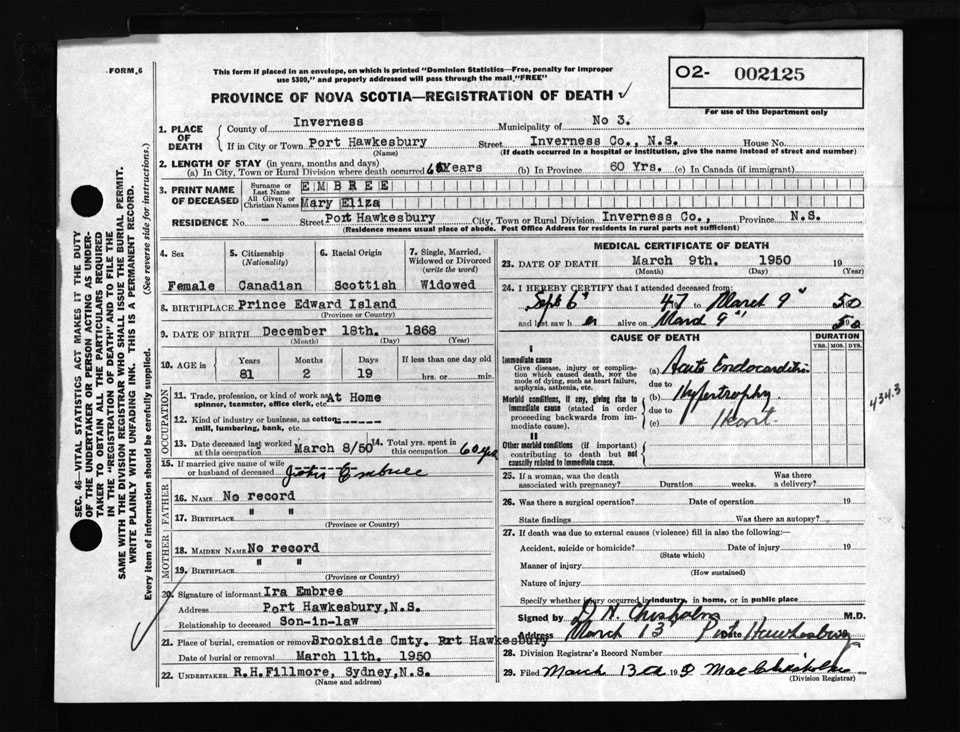 FORM 6
This form if placed in an envelope, on which is printed "Dominion Statistics—Free, penalty for improper
use $300," and properly addressed will pass through the mail "FREE"
O2- 002125
For use of the Department only
PROVINCE OF NOVA SCOTIA—REGISTRATION OF DEATH ✓
SEC. 46—VITAL STATISTICS ACT MAKES IT THE DUTY
OF THE UNDERTAKER OR PERSON ACTING AS UNDER-
TAKER TO OBTAIN ALL THE PARTICULARS REQUIRED
IN THE "REGISTRATION OF DEATH" AND TO FILE THE
SAME WITH THE DIVISION REGISTRAR WHO SHALL ISSUE THE BURIAL PERMIT.
WRITE PLAINLY WITH UNFADING INK. THIS IS A PERMANENT RECORD.
Every item of information should be carefully supplied. (See reverse side for instructions.)
1. PLACE OF DEATH County of Inverness Municipality of No 3.
If in City or Town Port Hawkesbury Street Inverness Co., N.S. House No.
(Name) (If death occurred in a hospital or institution, give the name instead of street and number)
2. LENGTH OF STAY (in years, months and days)
(a) In City, Town or Rural Division where death occurred Years (b) In Province 60 Yrs. (c) In Canada (if immigrant)
3. PRINT NAME OF DECEASED Surname or Last Name EMBREE
All Given or Christian Names Mary Eliza
RESIDENCE No. - Street Port Hawkesbury City, Town or Rural Division Inverness Co., Province N.S.
(Residence means usual place of abode. Post Office Address for residents in rural parts not sufficient)
4. Sex 5. Citizenship (Nationality) 6. Racial Origin 7. Single, Married, Widowed or Divorced (write the word)
Female Canadian Scottish Widowed
8. BIRTHPLACE Prince Edward Island
(Province or Country)
9. DATE OF BIRTH December 18th. 1868
(Month) (Day) (Year)
10. AGE in Years Months Days If less than one day old
81 2 19 hrs. or min.
OCCUPATION
11. Trade, profession, or kind of work as spinner, teamster, office clerk, etc. At Home
12. Kind of industry or business, as cotton mill, lumbering, bank, etc. -----
13. Date deceased last worked at this occupation March 8/50 14. Total yrs. spent in this occupation 60 yrs
15. If married give name of wife or husband of deceased John Embree
FATHER
16. NAME No record
17. BIRTHPLACE " "
(Province or Country)
MOTHER
18. MAIDEN NAME No record
19. BIRTHPLACE " "
(Province or Country)
20. Signature of informant Ira Embree
Address Port Hawkesbury, N.S.
Relationship to deceased Son-in-law
21. Place of burial, cremation or removal Brookside Cmty. Port Hawkesbury
Date of burial or removal March 11th. 1950
22. UNDERTAKER R.H.Fillmore, Sydney, N.S.
(Name and address)
MEDICAL CERTIFICATE OF DEATH
23. DATE OF DEATH March 9th. 1950 19
(Month) (Day) (Year)
24. I HEREBY CERTIFY that I attended deceased from:
Sept 6" 47 to March 9" 50
and last saw her alive on March 9" 1950
CAUSE OF DEATH DURATION
YRS. MOS. DYS.
I
Immediate cause
Give disease, injury or complication which caused death, NOT the mode of dying, such as heart failure, asphyxia, asthenia, etc.
(a) Acute Endocarditis
due to
Morbid conditions, if any, giving rise to immediate cause (stated in order proceeding backwards from immediate cause).
(b) Hypertrophy
due to
(c) Heart
434.3
II
Other morbid conditions (if important) contributing to death but not causally related to immediate cause.
25. If a woman, was the death associated with pregnancy? Duration weeks. Was there a delivery?
26. Was there a surgical operation? Date of operation 19
State findings Was there an autopsy?
27. If death was due to external causes (violence) fill in also the following:—
Accident, suicide or homicide? Date of injury 19
(State which)
Manner of injury
(How sustained)
Nature of injury
Specify whether injury occurred in industry, in home, or in public place
Signed by D. H. Chisholm M.D.
Address March 13 Port Hawkesbury
28. Division Registrar's Record Number
29. Filed March 13th 19 Mae Chisholm
(Division Registrar)